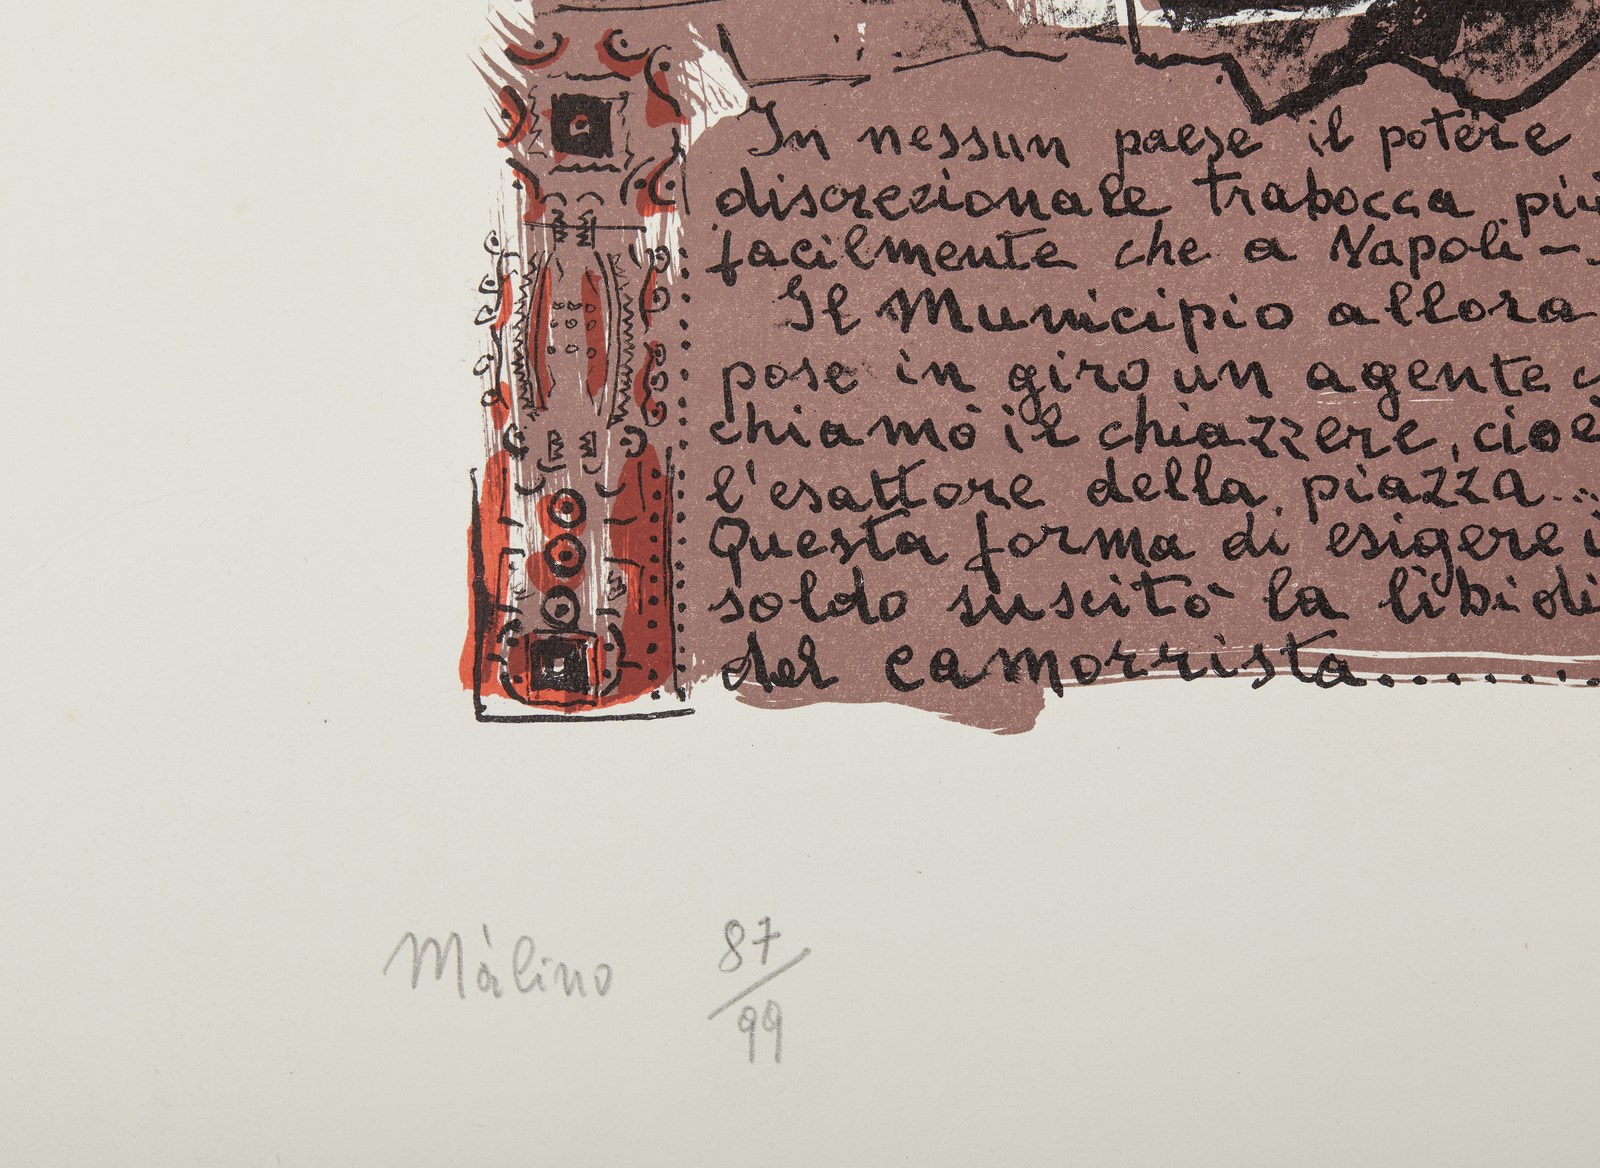 In nessun paese il potere
discrezionale trabocca più
facilmente che a Napoli –
Il Municipio allora
pose in giro un agente
chiamò il chiazzere, cioè
l'esattore della piazza...
Questa forma di esigere i
soldo suscitò la libidi
del camorrista.........
Màlino 87/99